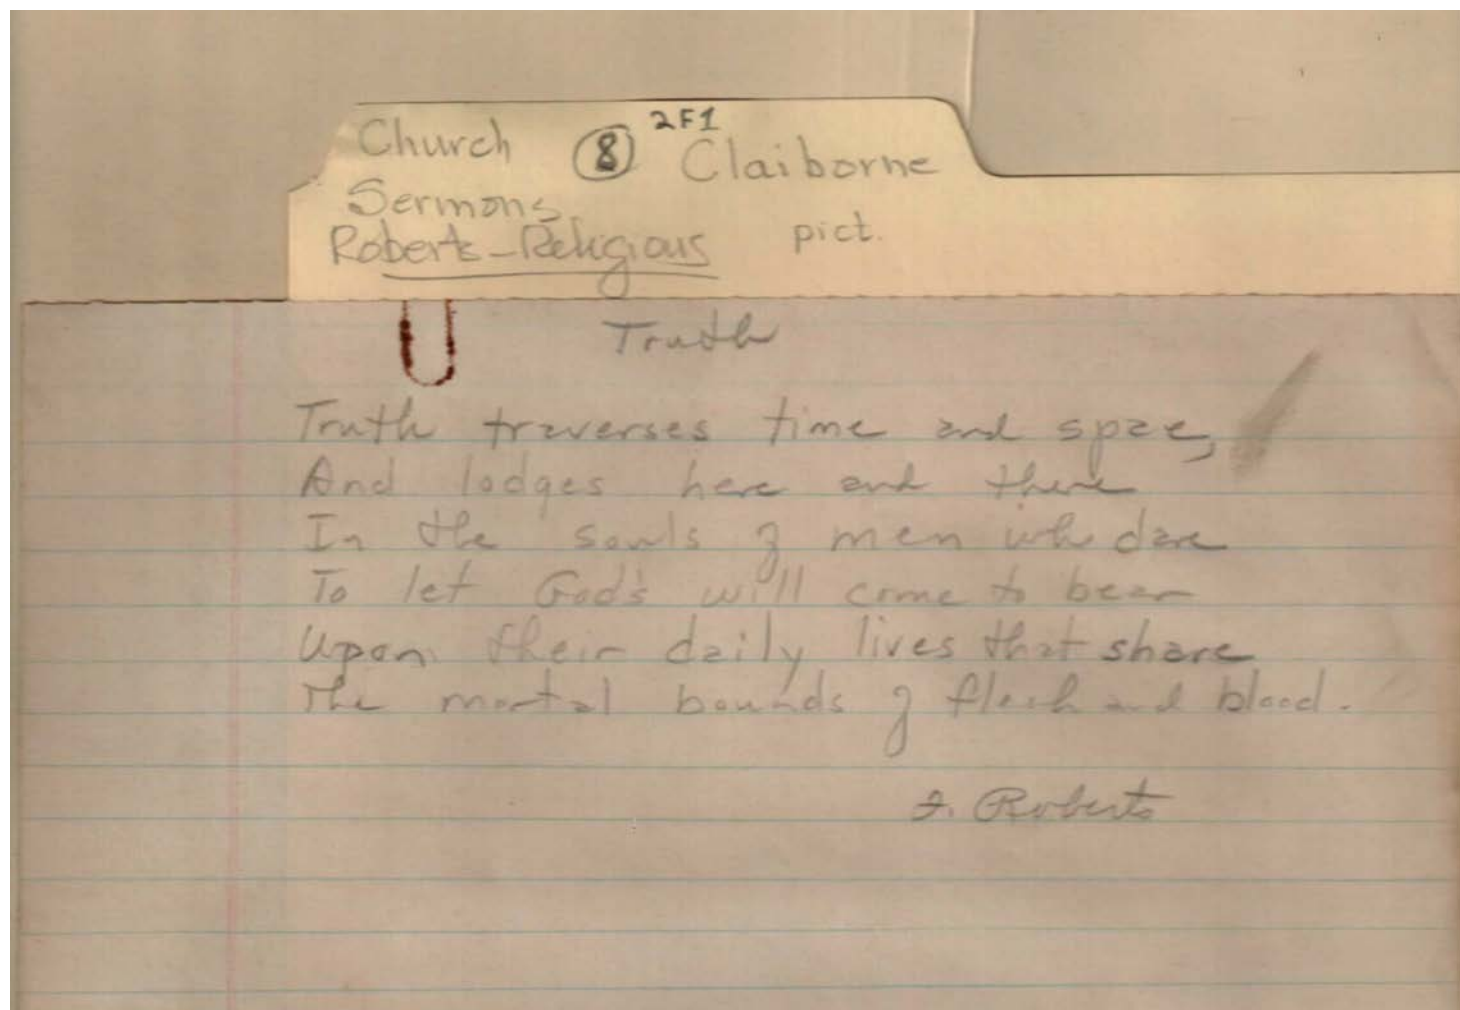 2F1
Church 8 Claiborne
Sermons
Roberts-Religious pict.
Truth
Truth traverses time and space,
And lodges here and there
In the souls of men who dare
To let God's will come to bear
Upon their daily lives that share
The mortal bounds of flesh and blood.
J. Roberts